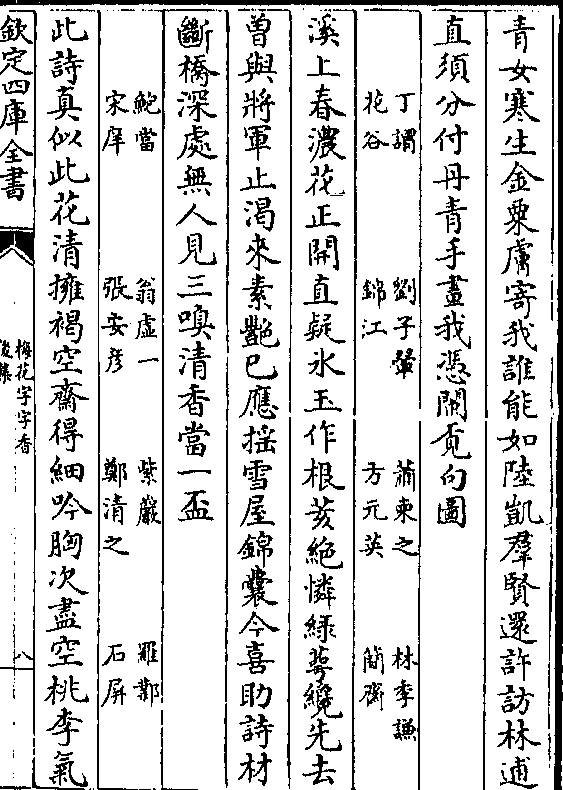 青女寒生金粟膚寄我誰能如陸凱羣賢還許訪林逋
直須分付丹青手畫我憑闌覔句圖
丁謂　劉子翬　蕭東之　林季謙
花谷　錦江　方元英　簡齋
溪上春濃花正開直疑氷玉作根荄絶憐綠萼纔先去
曽與將軍止渴來素艶已應揺雪屋錦囊今喜助詩材
斷橋深處無人見三嗅清香當一盃
鮑當　翁虛一　紫巖　羅鄴
宋庠　張安彦　鄭清之　石屏
此詩真似此花清擁褐空齋得細吟胸次盡空桃李氣
欽定四庫全書
梅花字字香
後集
八